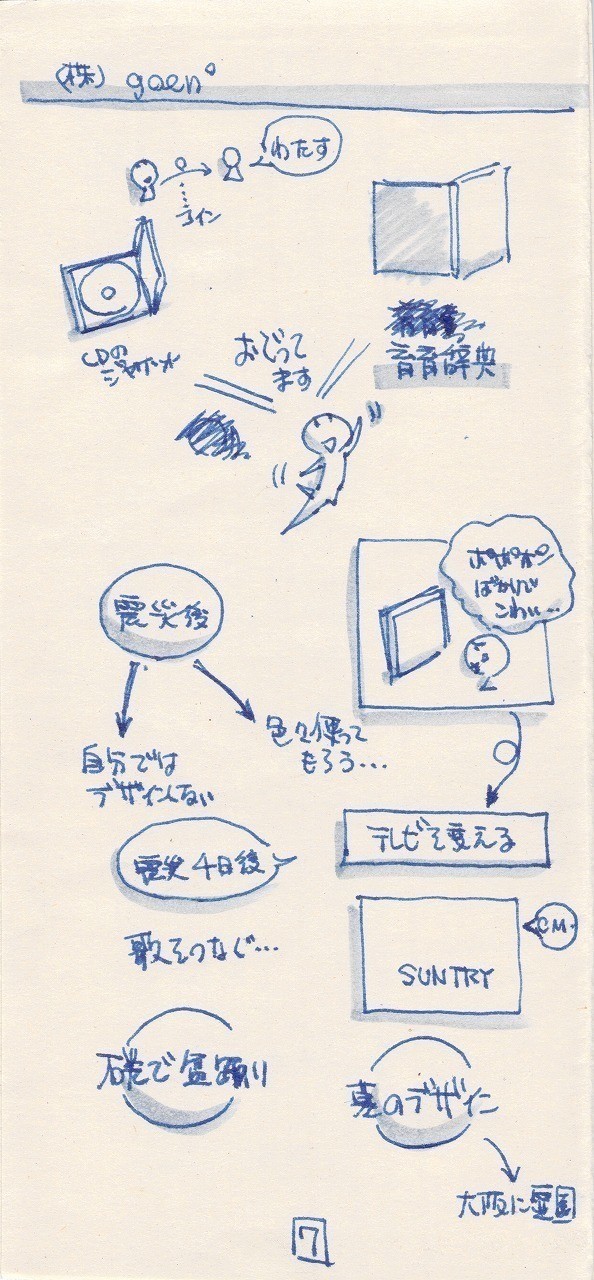 (株) goen°
わたす
コイン
CDの
ジャケット
おどって
ます
育育辞典
震災後
自分では
デザインしない
色々使って
もろう…
ポポポン
ばかりで
こわい…
テレビを変える
震災4日後
歌をつなぐ…
CM
SUNTRY
で盆踊り
墓のデザイン
大阪に霊園
7